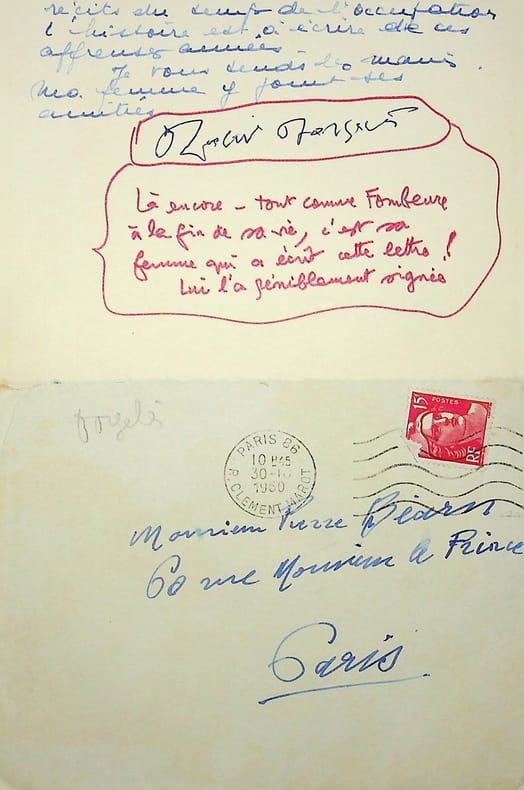 récits du temps de l'occupation
l'histoire est à écrire de ces
affreuses années.
Je vous sends les mains.
Ma femme y joint ses
amitiés
Là encore - tout comme Fombeure
à la fin de sa vie, c'est sa
femme qui a écrit cette lettre !
Lui l'a péniblement signée
Dorgelès
PARIS 86
10 H45
30-10
1950
R. CLEMENT-MAROT
15F POSTES
RF
Monsieur Pierre Béarn
60 rue Monsieur le Prince
Paris